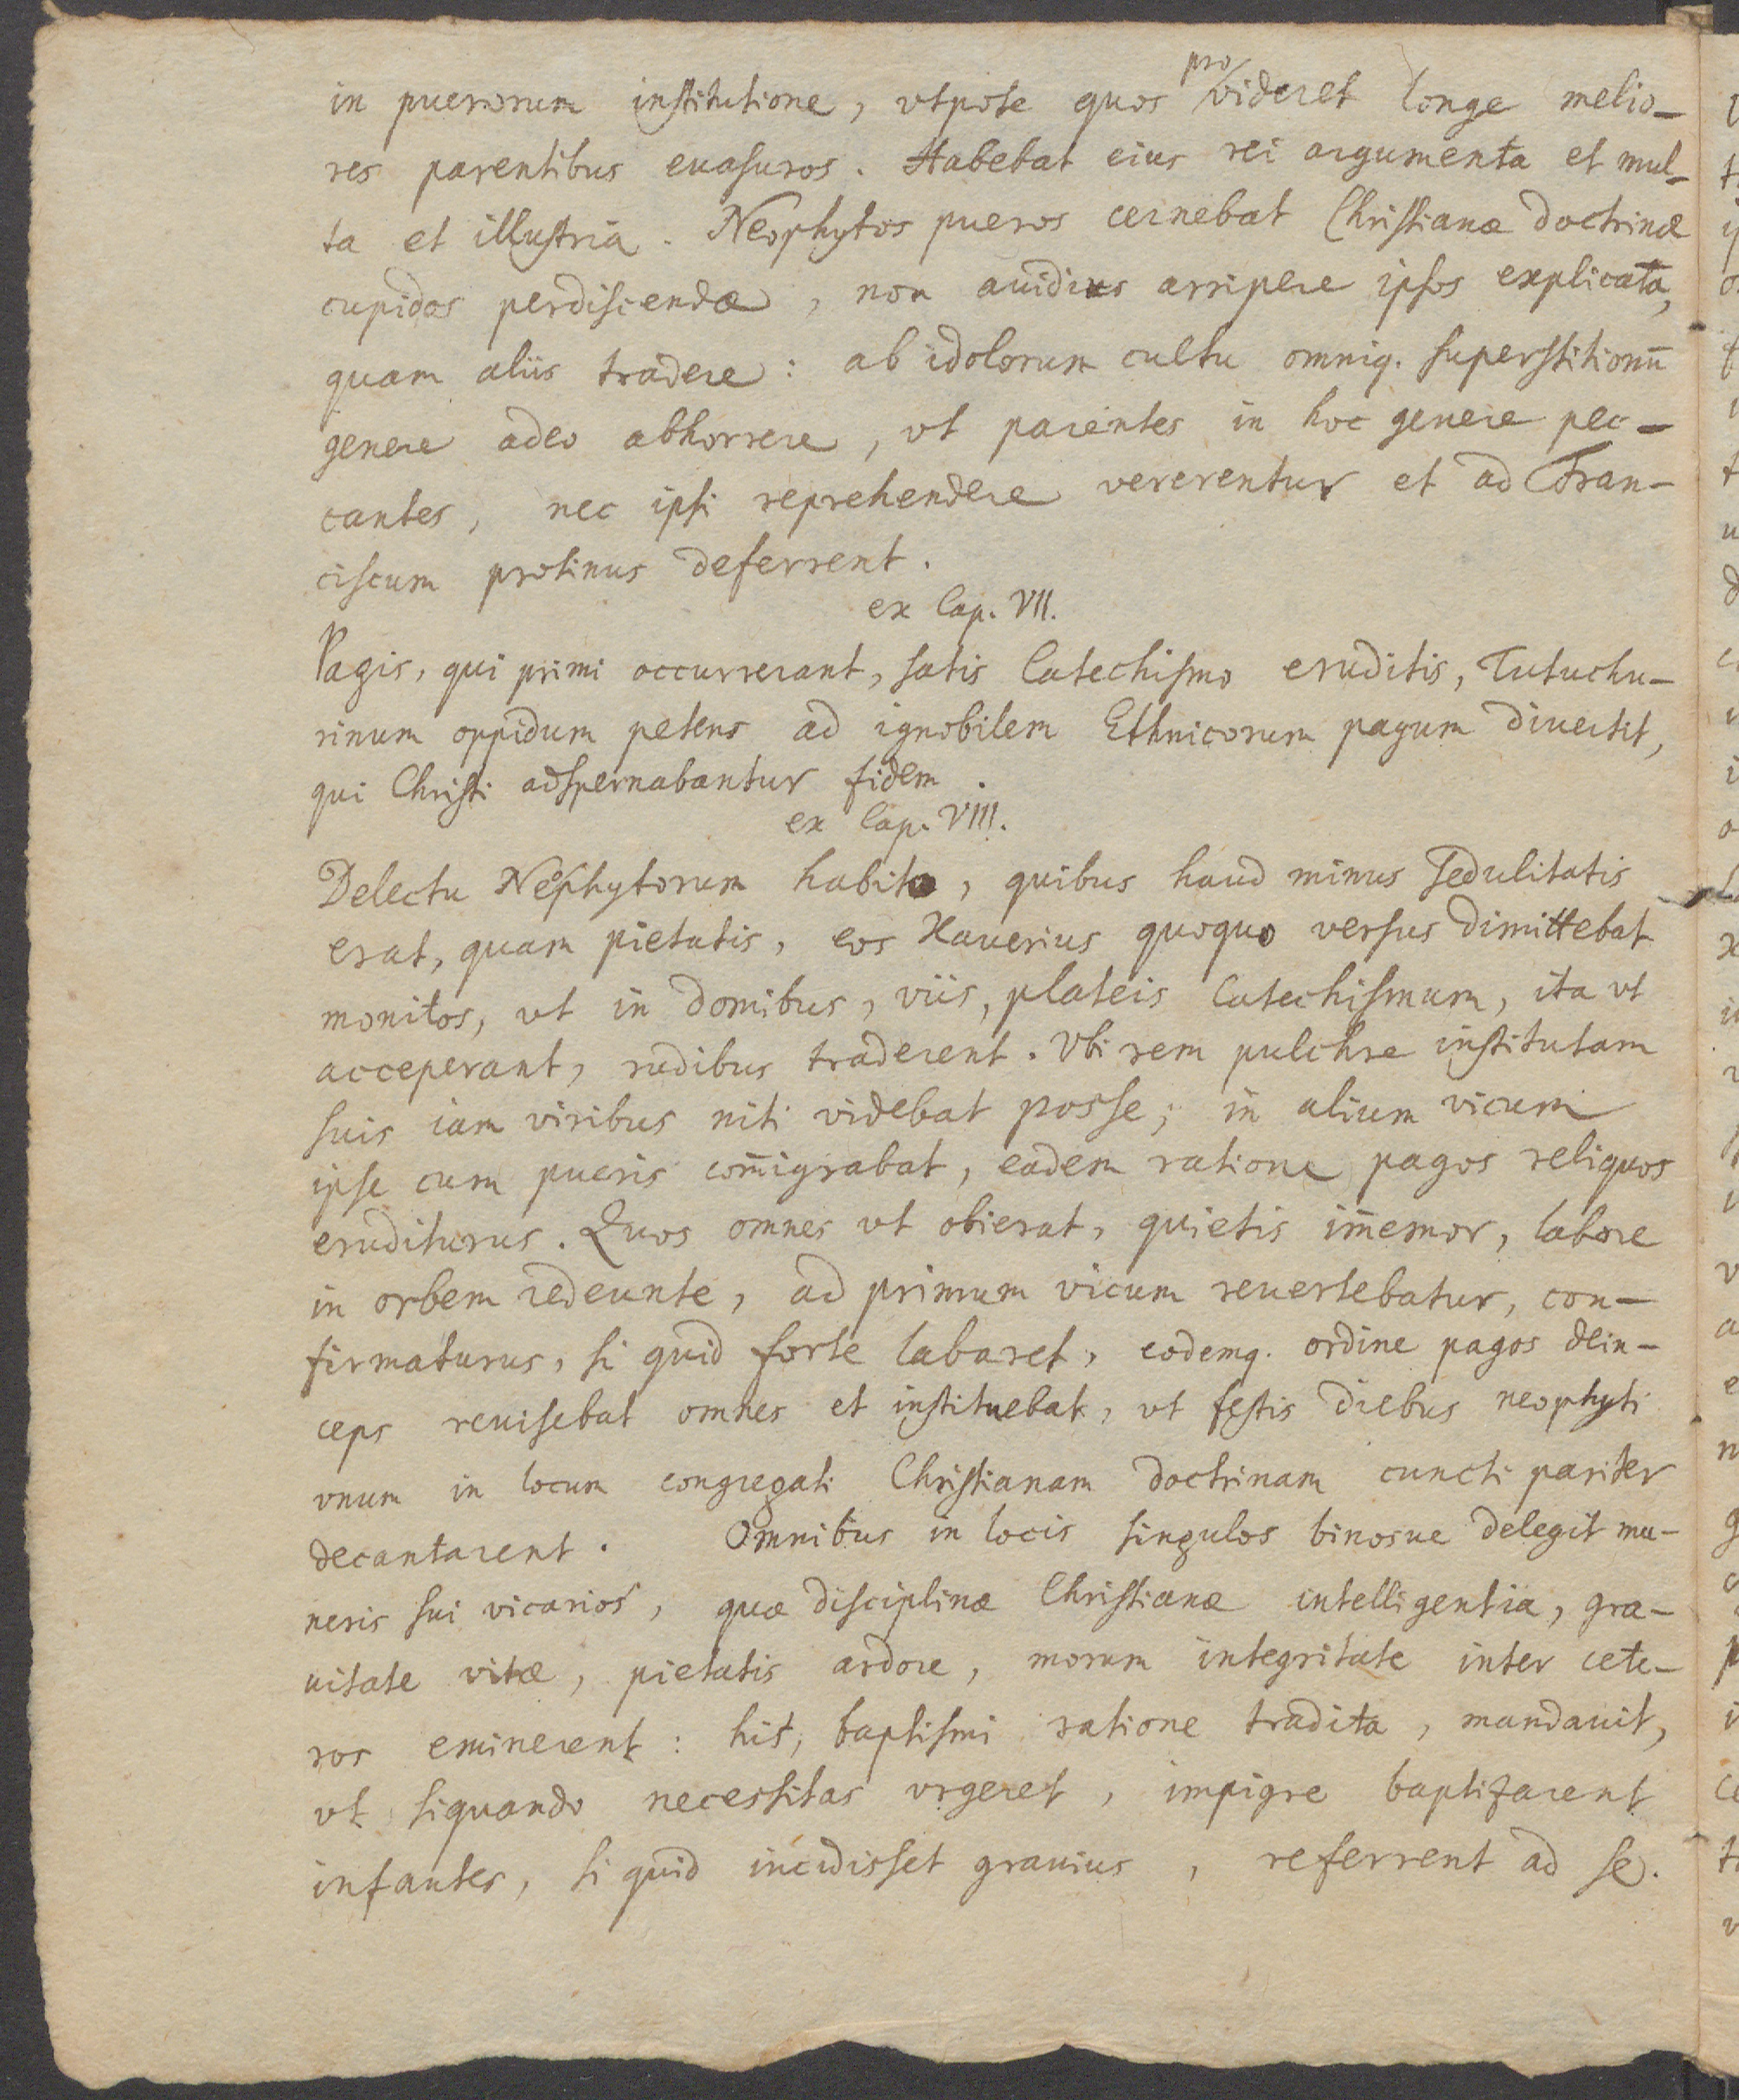 in puerorum institutione, vtpote quos provideret longe melio-
res parentibus euasuros. Habebat eius rei argumenta et mul-
ta et illustria. Neophytos pueros cernebat Christianæ doctrinæ
cupidos perdiscendæ, non auidius arripere ipsos explicata,
quam aliis tradere: ab idolorum cultu omniq. superstitionū
genere adeo abhorrere, vt parentes in hoc genere pec-
cantes, nec ipsi reprehendere vererentur et ad Fran-
ciscum protinus deferrent.
ex Cap. VII.
Pagis, qui primi occurrerant, satis Catechismo eruditis, Tutuchu-
rinum oppidum petens ad ignobilem Ethnicorum pagum diuertit,
qui Christi adspernabantur fidem.
ex Cap. VIII.
Delectu Neophytorum habito, quibus haud minus sedulitatis
erat, quam pietatis, eos Xauerius quoquo versus dimittebat
monitos, vt in domibus, viis, plateis Catechismum, ita vt
acceperant, rudibus traderent. Vbi rem pulchre institutam
suis iam viribus niti videbat posse; in alium vicum
ipse cum pueris com̄igrabat, eadem ratione pagos reliquos
eruditurus. Quos omnes vt obierat, quietis im̄emor, labore
in orbem redeunte, ad primum vicum reuertebatur, con-
firmaturus, si quid forte labaret, eodemq. ordine pagos dein-
ceps reuisebat omnes et instituebat, vt festis diebus neophyti
vnum in locum congregati Christianam doctrinam cuncti pariter
decantarent. Omnibus in locis singulos binosue delegit mu-
neris sui vicarios, quæ disciplinæ Christianæ intelligentia, gra-
uitate vitæ, pietatis ardore, morum integritate inter cete-
ros eminerent: his, baptismi ratione tradita, mandauit,
vt siquando necessitas vrgeret, impigre baptizarent
infantes, si quid incidisset grauius, referrent ad se.